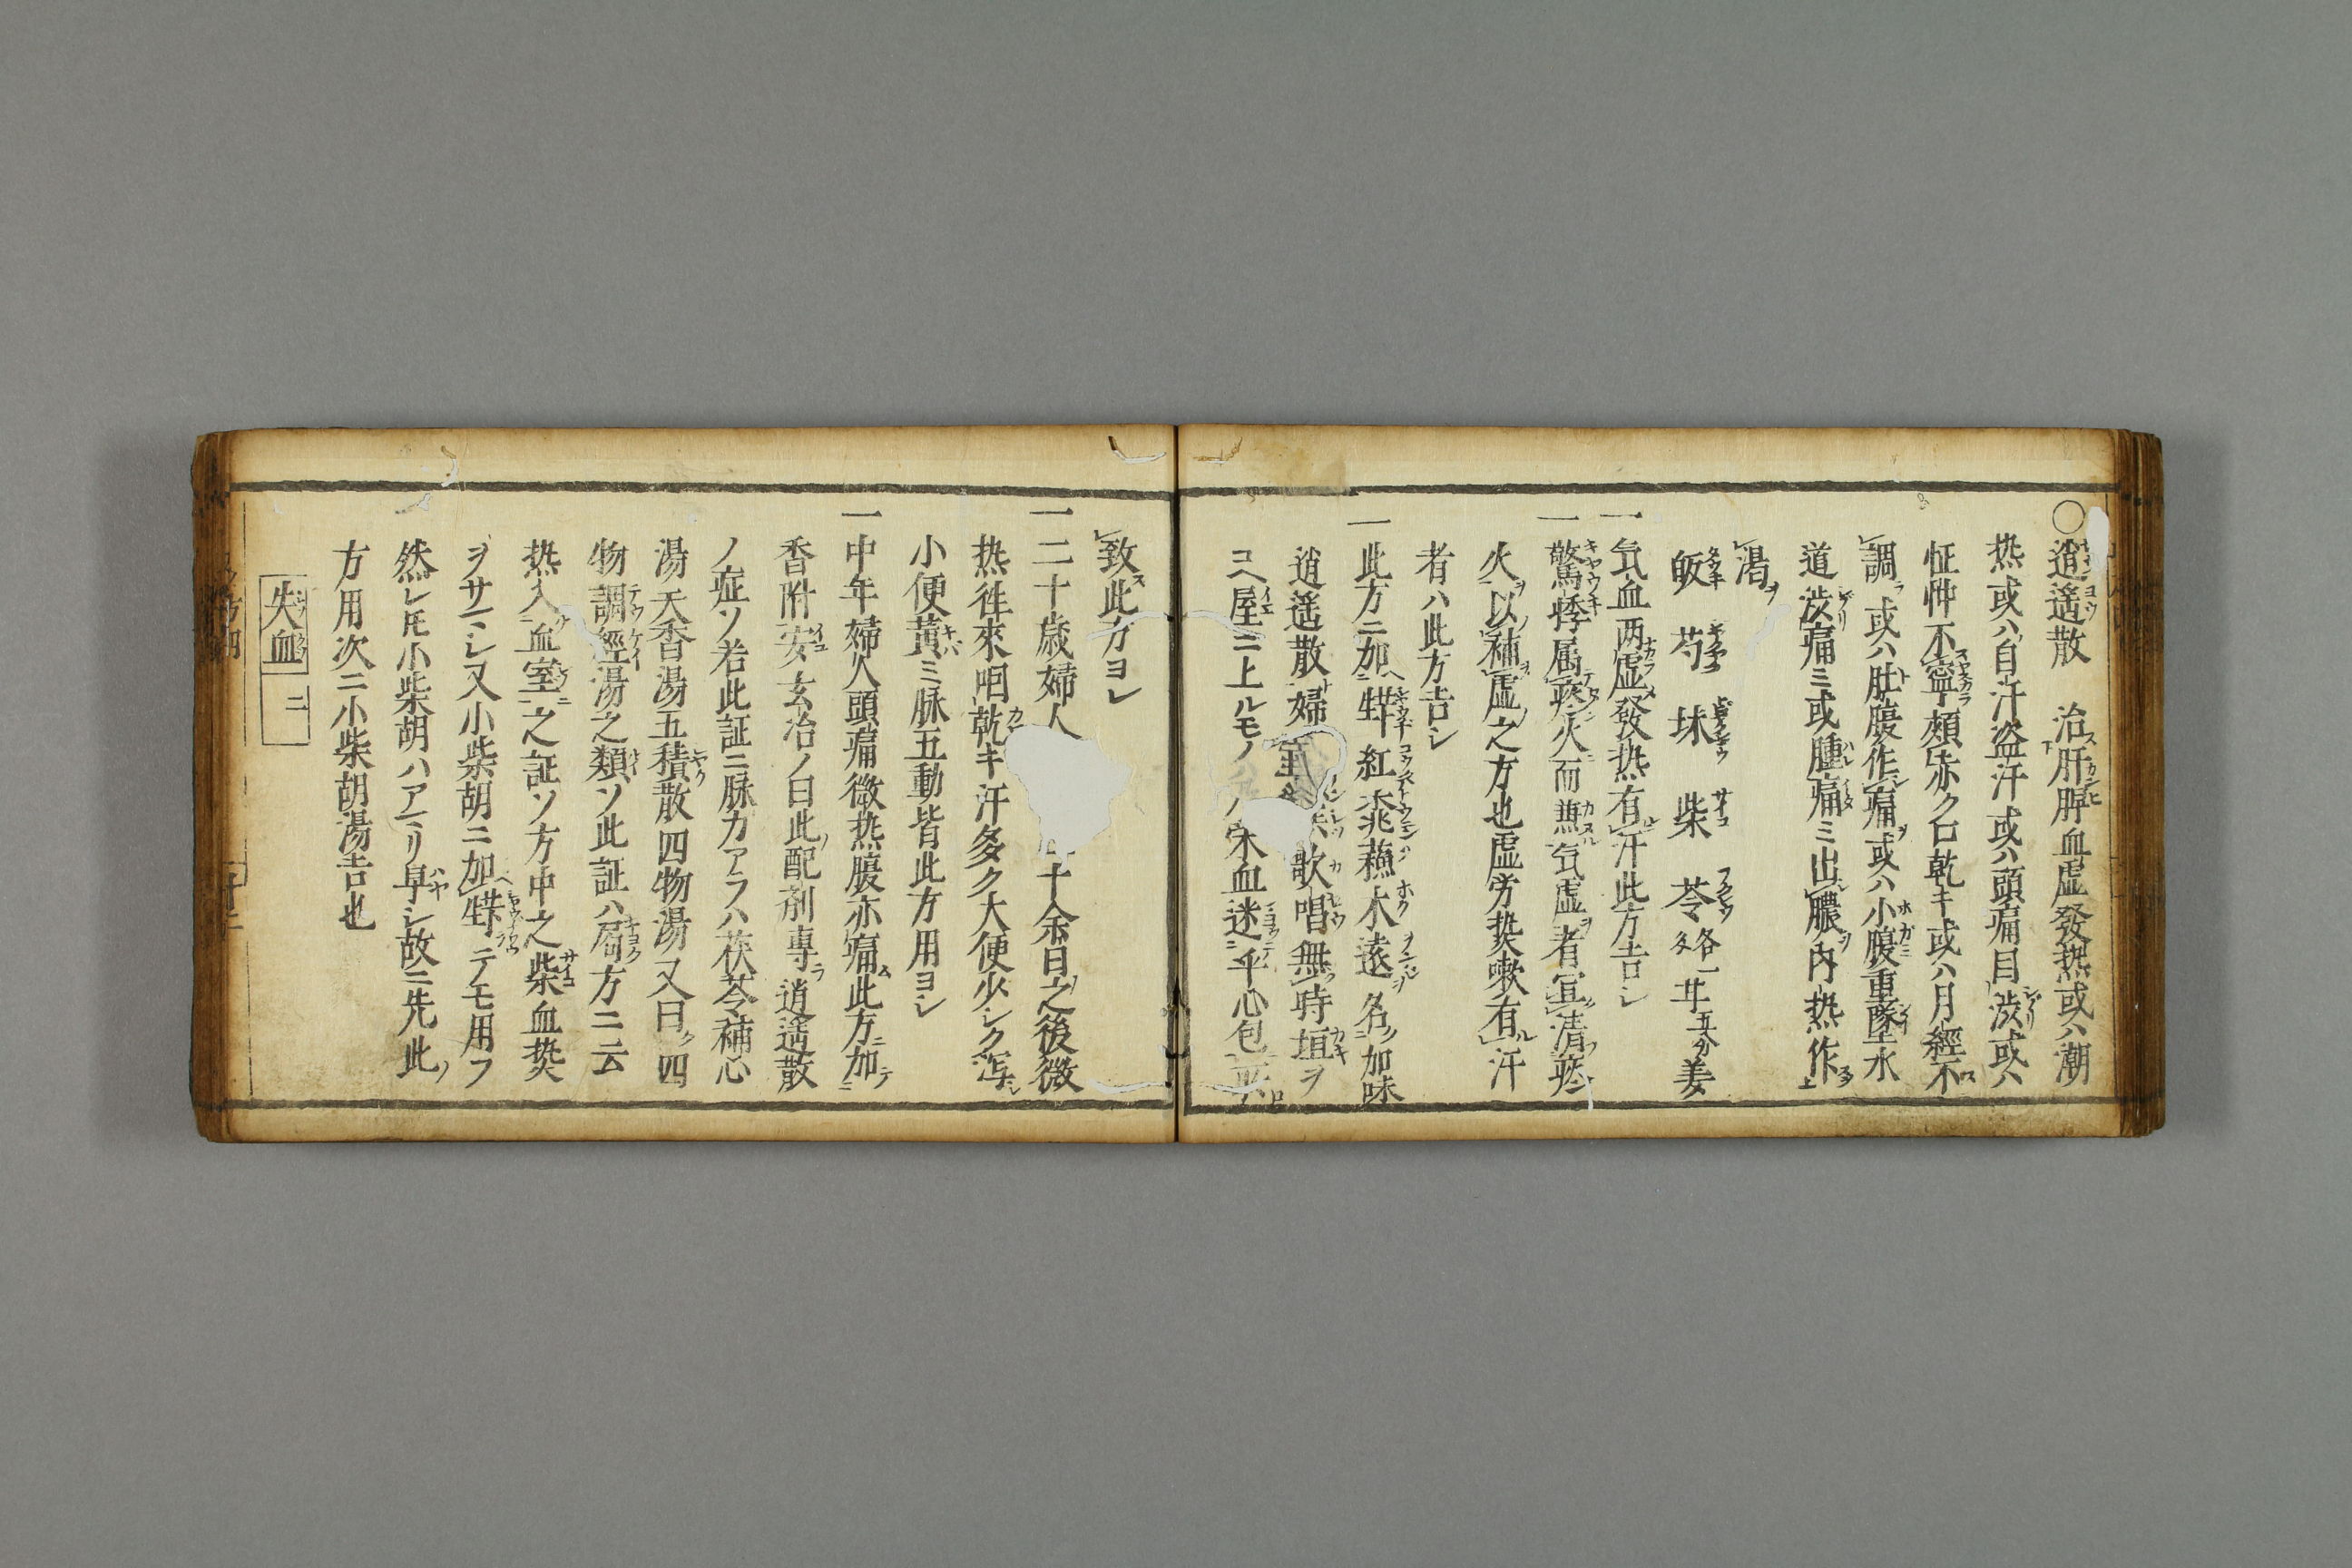 ○逍遥散　治肝脾血虚發热或ハ潮
热或ハ自汗盗汗或ハ頭痛目渋或ハ
怔忡不寧頰赤ク口乾キ或ハ月經不
調或ハ肚腹作痛或ハ小腹重墜水
道渋痛ミ或腫痛ミ出膿内热作
渇
皈　芍　㭐　柴　苓　各一𠦄五分姜
一気血两虚發热有汗此方吉シ
一驚悸属痰火而無気虚者宜清痰
火以補虚之方也虚労熱嗽有汗
者ハ此方吉シ
一此方ニ加牡紅桃蘓木遠名加味
逍遥散婦歌唱無時垣ヲ
コヘ屋ニ上ルモノ血迷乎心包
致此方ヨシ
一二十歳婦人十余日之後微
热徃來咽乾キ汗多ク大便少シク瀉
小便黄ミ脉五動皆此方用ヨシ
一中年婦人頭痛微热腹亦痛此方加
香附安玄冶ノ曰此配剤専逍遥散
ノ症ソ若此証ニ脉力アラハ茯苓補心
湯天香湯五積散四物湯又曰四
物調經湯之類ソ此証ハ局方ニ云
热入血室之証ソ方中之柴血熱
ヲサマシ又小柴胡ニ加テモ用フ
然レ𪜈小柴胡ハアマリ早シ故ニ先此
方用次ニ小柴胡湯吉也
失血　二